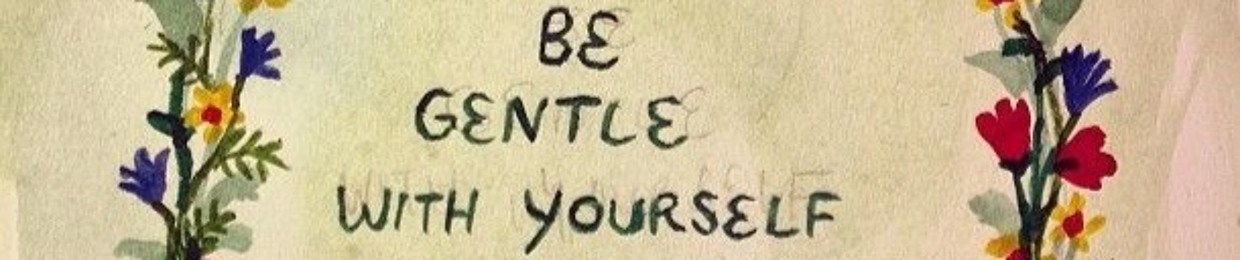 BE
GENTLE
WITH YOURSELF